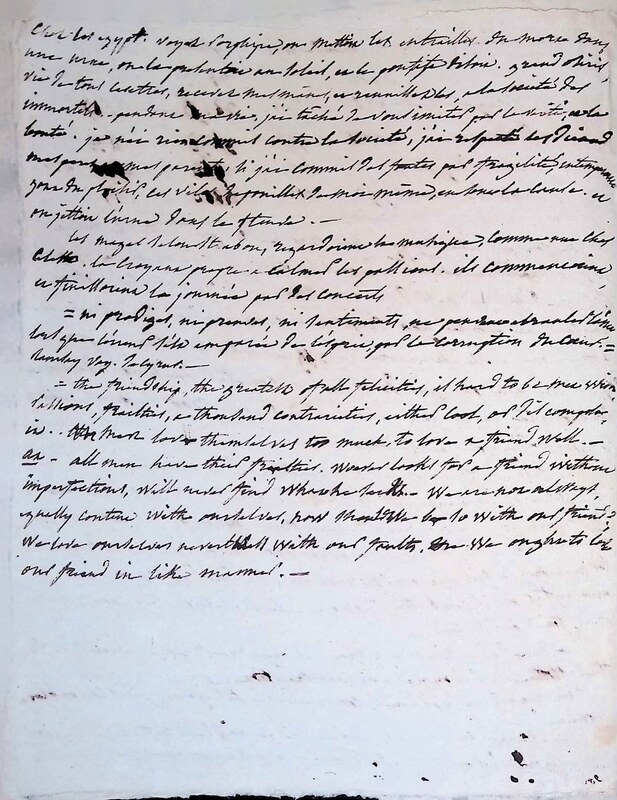 Chez les égypt. voyez Porphire, on mettoit les entrailles du mort dans
une urne, on la présentoit au soleil, et le pontife disoit. grand osiris,
vie de tous les êtres, recevez mes mânes, et réunissez les, à la société des
immortels. pendant ma vie, j'ai tâché de vous imiter par la vérité, et la
bonté. je n'ai rien commis contre la société, j'ai respecté les dieux
mes parents si j'ai commis des fautes par fragilité, intempérance
ces viles dépouilles de moi même, en sont la cause. et
on jettoit l'urne dans le fleuve. —
les mages selon regardoient la musique, comme une chose
la croyant propre à calmer les passions. ils commencoient,
et finissoient la journée par des concerts
= ni prodiges, ni preuves, ni sentiments, ne peuvent ébranler
tout que l'érreur s'est emparée de l'esprit par la corruption du cœur. =
voy.
= the friendship, the greatest of all felicities, is hard to be met with
passions, frailties, a thousand contrarieties, either cool, or
it. . Men love themselves too much, to love a friend well. —
an - all men have their frailties. whoever looks for a friend without
imperfections, will never find what he seeks. We are not allways,
equally content with ourselves, how should we be so with our friend?
We love ourselves nevertheless with our faults, and we ought to love
our friend in like manner. —